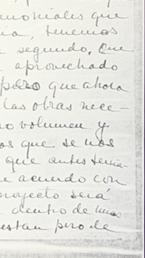 moniales que
na, tenemos
segundo, que
aprovechado
pero que ahora
las obras nece-
ro volumen y
os que se nos
que antes tenía
acuerdo con
royecto será
dentro de una
estan pero de